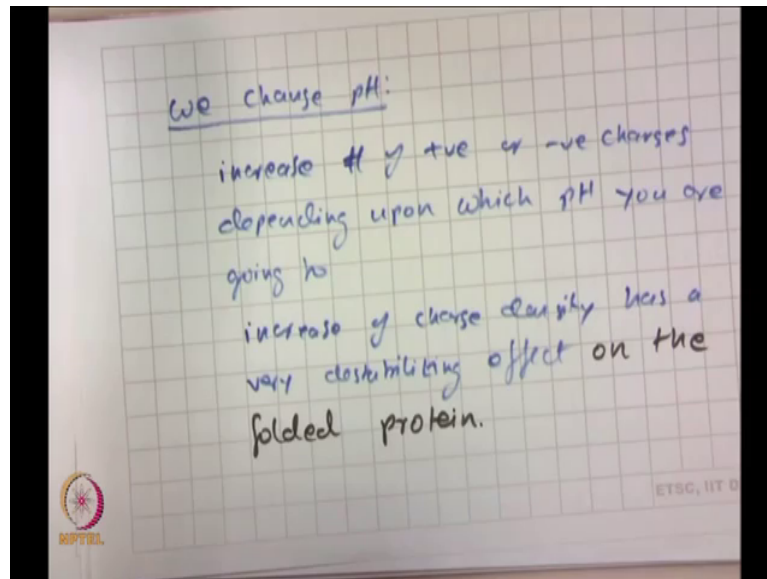 we change pH:
increase # of +ve or -ve charges
depending upon which pH you are
going to
increase of charge density has a
very destabilizing effect on the
folded protein.
ETSC, IIT D
NPTEL